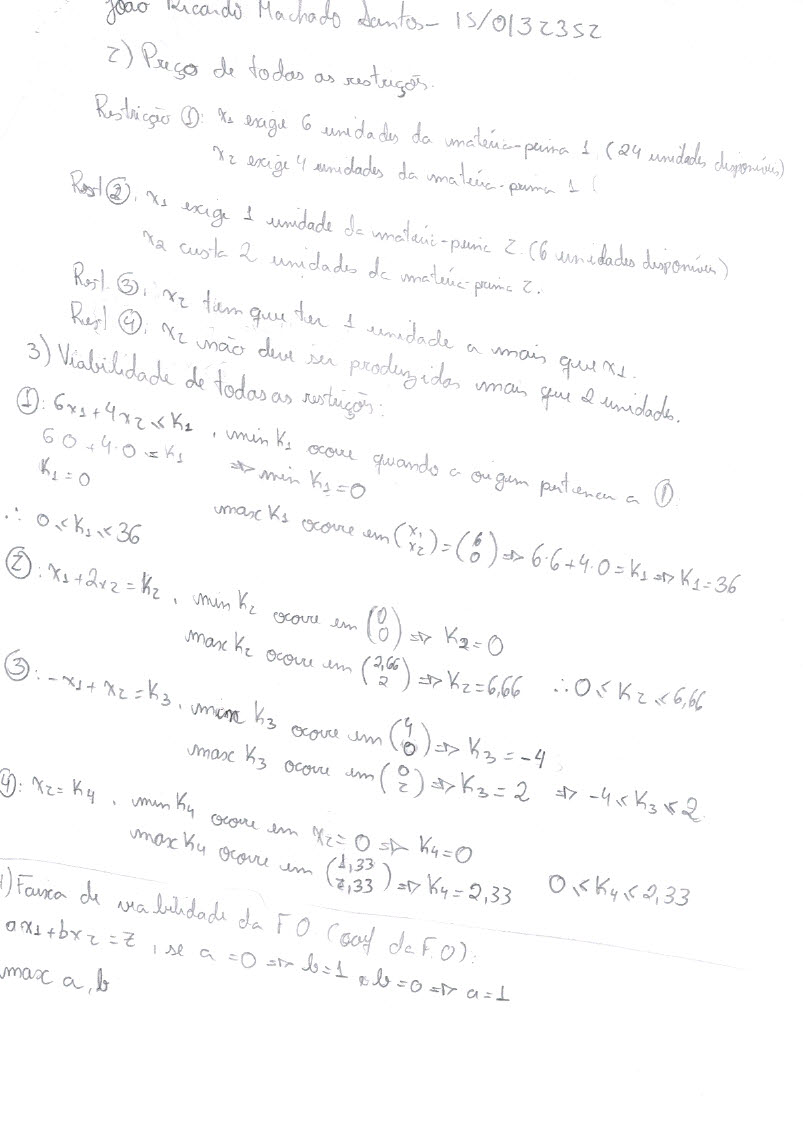 João Ricardo Machado Santos - 15/0132352
2) Preço de todas as restrições.
Restrição ①: x1 exige 6 unidades da matéria-prima 1. (24 unidades disponíveis)
x2 exige 4 unidades da matéria-prima 1 (
Rest ②: x1 exige 1 unidade da matéria-prima 2. (6 unidades disponíveis)
x2 custa 2 unidades da matéria-prima 2.
Rest. ③: x2 tem que ter 1 unidade a mais que x1.
Rest ④: x2 não deve ser produzidas mais que 2 unidades.
3) Viabilidade de todas as restrições:
①: 6x1 + 4x2 ≤ K1, min K1 ocorre quando a origem pertencer a ①
6 0 + 4·0 = K1 ⇒ min K1 = 0
K1 = 0
max K1 ocorre em (x1 x2) = (6 0) ⇒ 6·6 + 4·0 = K1 ⇒ K1 = 36
∴ 0 ≤ K1 ≤ 36
②: x1 + 2x2 = K2, min K2 ocorre em (0 0) ⇒ K2 = 0
max K2 ocorre em (2,66 2) ⇒ K2 = 6,66 ∴ 0 ≤ K2 ≤ 6,66
③: -x1 + x2 = K3, min K3 ocorre em (4 0) ⇒ K3 = -4
max K3 ocorre em (0 2) ⇒ K3 = 2 ⇒ -4 ≤ K3 ≤ 2
4): x2 = K4, min K4 ocorre em x2 = 0 ⇒ K4 = 0
max K4 ocorre em (1,33 2,33) ⇒ K4 = 2,33 0 ≤ K4 ≤ 2,33
) Faixa de viabilidade da FO (coef da F.O):
ax1 + bx2 = z, se a = 0 ⇒ b = 1 b = 0 ⇒ a = 1
max a, b